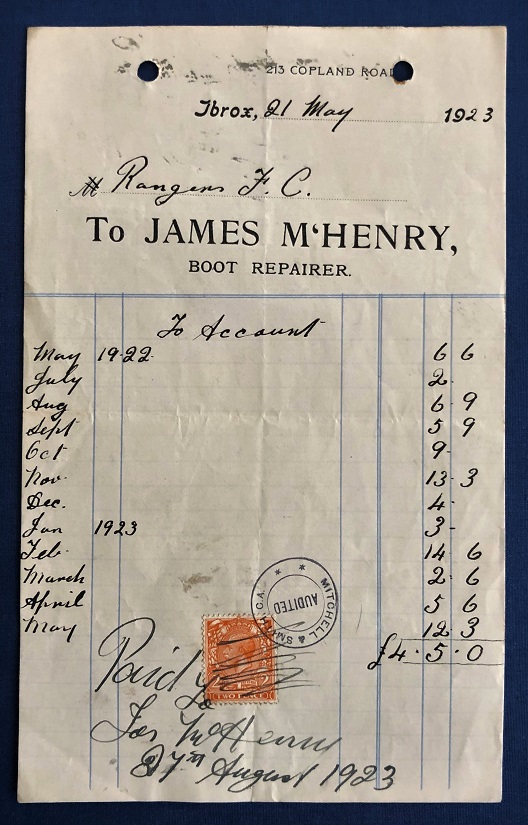 213 COPLAND ROAD
Ibrox, 21 May 1923
M Rangers F. C.
To JAMES M‘HENRY,
BOOT REPAIRER.
To Account
May 1922 6 6
July 2 -
Aug 6 9
Sept 5 9
Oct 9 -
Nov 13 3
Dec. 4 -
Jan 1923 3 -
Feb 14 6
March 2 6
April 5 6
May 12 3
£4 . 5 . 0
MITCHELL & SMITH C.A.
AUDITED
TWO PENCE
Paid
Jas McHenry
27th August 1923